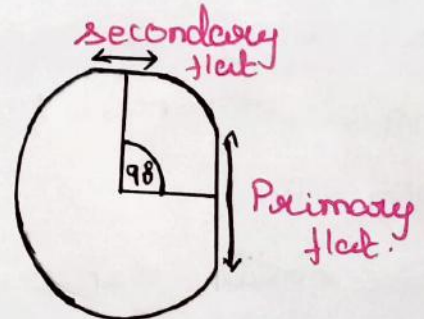 secondary
flat
98
Primary
flat.